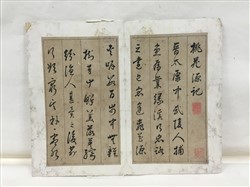 桃花源記
晉太原中武陵人捕
魚為業緣溪行忘路
之遠近忽逢桃花
林夾岸數百步中無雜
樹芳草鮮美落英繽
紛漁人甚異之復前
行欲窮其林